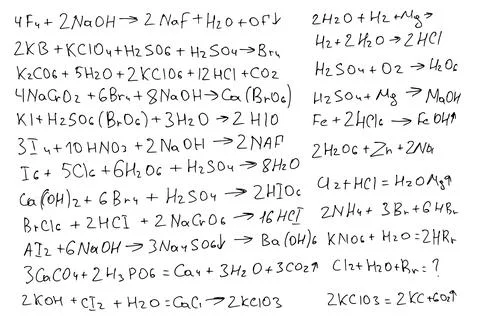 4F₄ + 2NaOH → 2NaF + H₂O + OF↓
2KB + KClO₄ + H₂SO₆ + H₂SO₄ → Br₄
K₂CO₆ + 5H₂O + 2KClO₆ + 12HCl + CO₂
4NaCrO₂ + 6Br₄ + 8NaOH → Ca(BrO₆)
KI + H₂SO₆(BrO₆) + 3H₂O → 2HIO
3I₄ + 10HNO₃ + 2NaOH → 2NAF
I₆ + 5Cl₆ + 6H₂O₆ + H₂SO₄ → 8H₂O
Ca(OH)₂ + 6Br₄ + H₂SO₄ → 2HIO₆
BrCl₆ + 2HCI + 2NaCrO₆ → 16HCI
AI₂ + 6NaOH → 3Na₄SO₆↓ → Ba(OH)₆
3CaCO₄ + 2H₃PO₆ = Ca₄ + 3H₂O + 3CO₂↑
2KOH + CI₂ + H₂O = CaC₁ → 2KClO3
2H₂O + H₂ + Mg →
H₂ + 2H₂O → 2HCl
H₂SO₄ + O₂ → H₂O₆
H₂SO₄ + Mg → MaOH
Fe + 2HCl₆ → FeOH↑
2H₂O₆ + Zn + 2Na
Cl₂ + HCl = H₂OMg↑
2NH₄ + 3Br + 6HBr
KNO₆ + H₂O = 2HBr
Cl₂ + H₂O + Br = ?
2KClO3 = 2KC + 6O₂↑